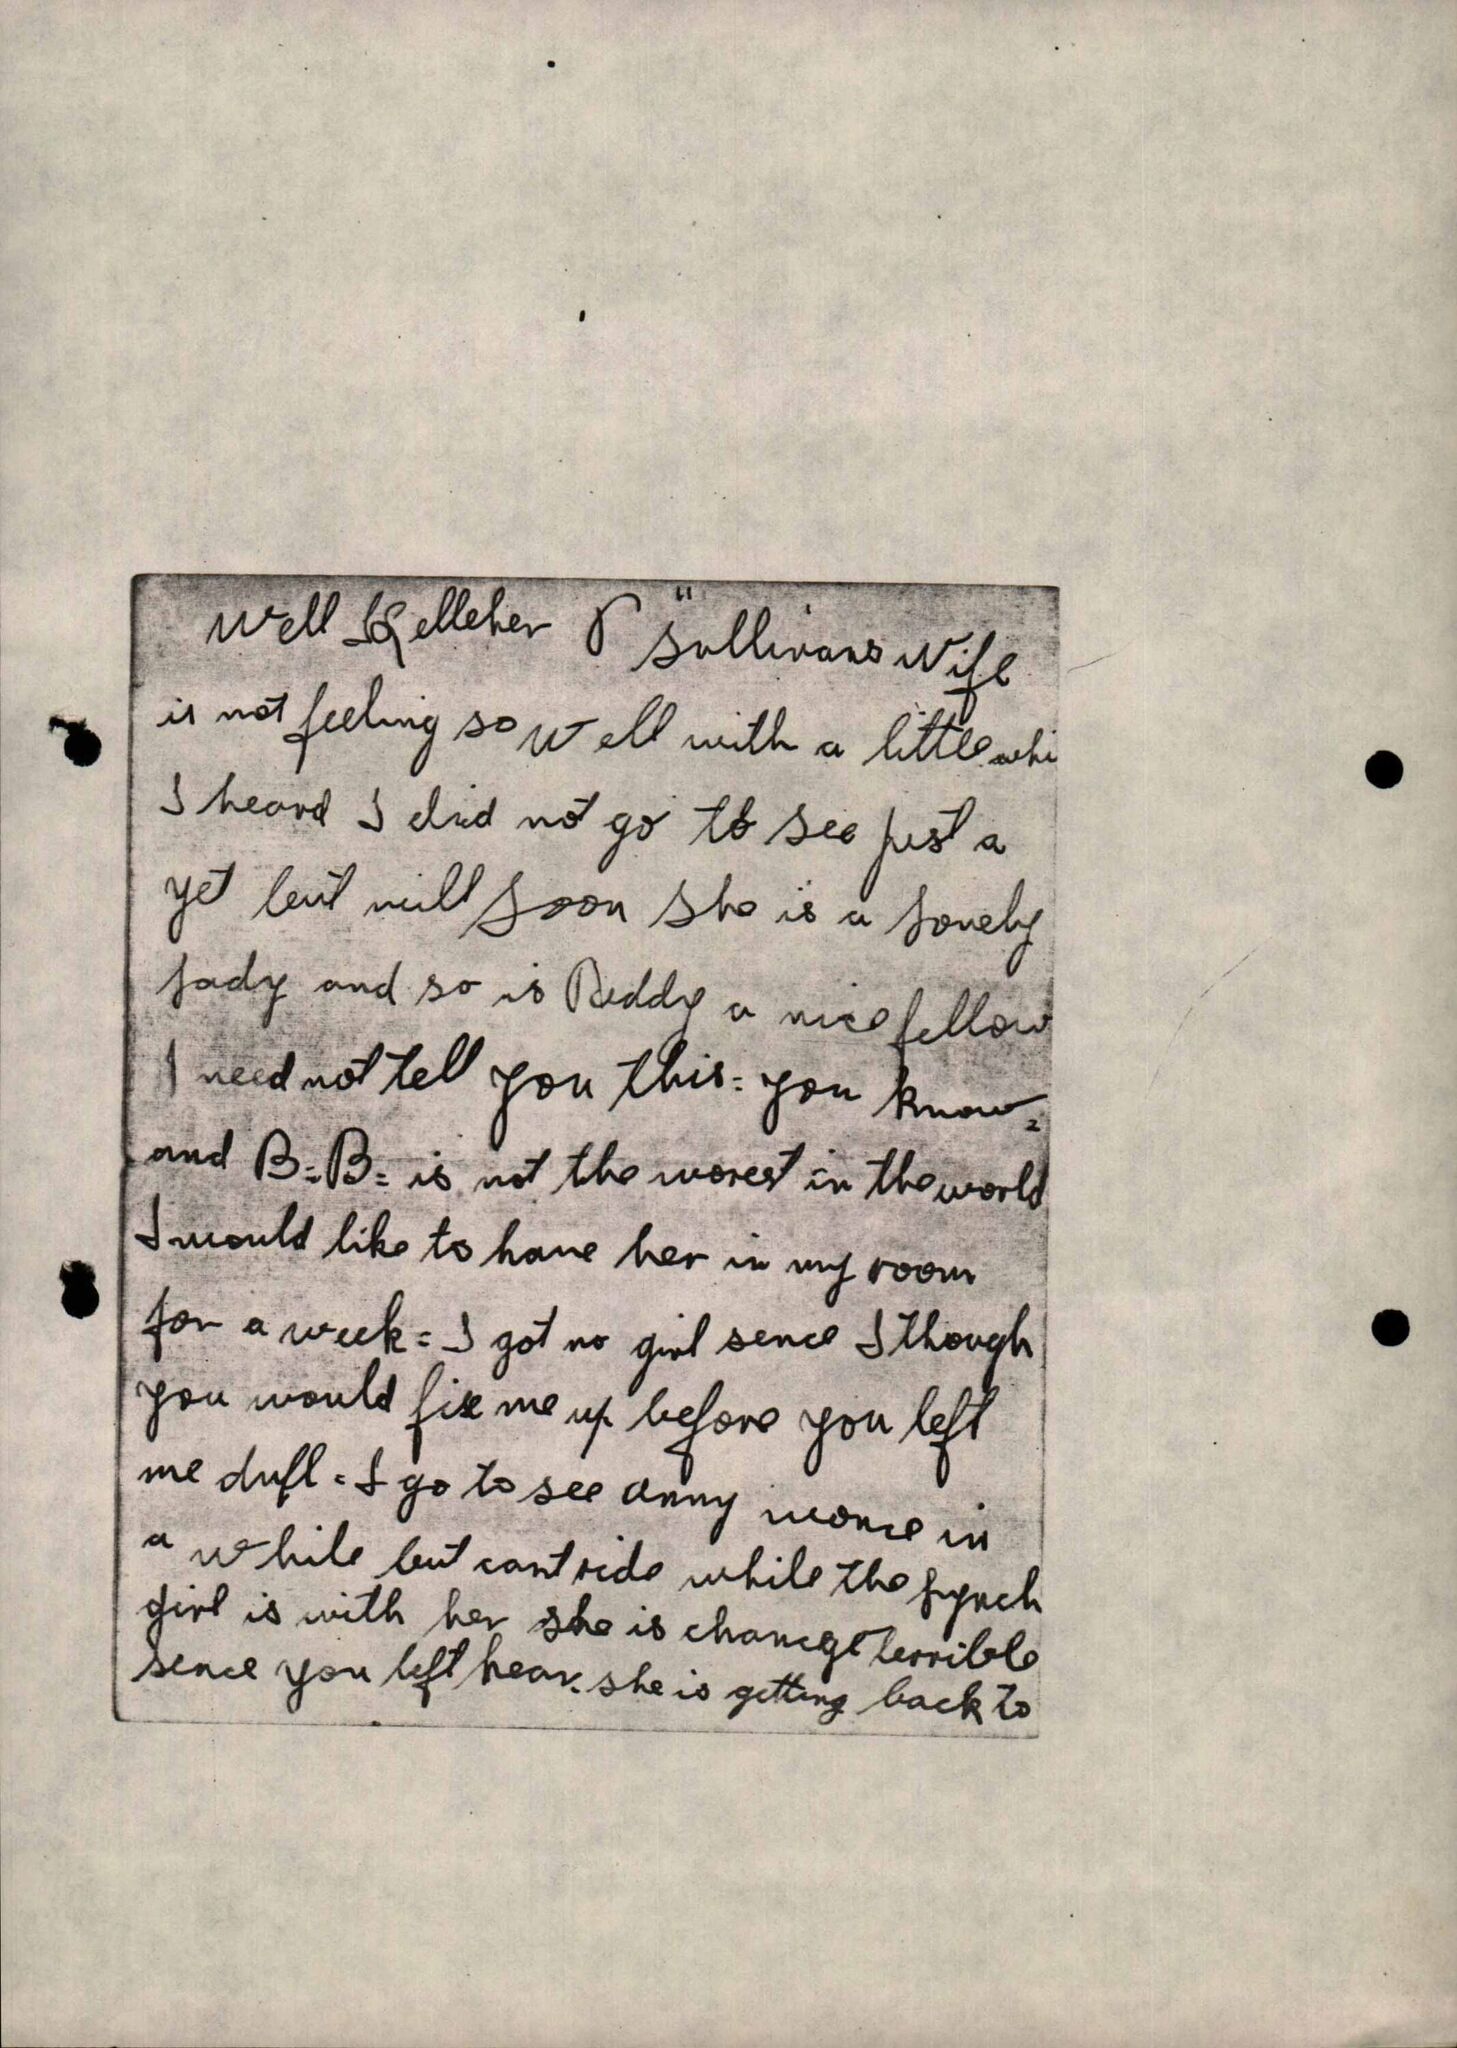 Well Kelleher P" Sullivans Wife
is not feeling so Well with a little whi
I heard I did not go to see just a
yet but will soon She is a lonely
lady and so is Paddy a nice fellow
I need not tell you this = you know =
and B = B = is not the worest in the world
I would like to have her in my room
for a week = I got no girl sence I though
you would fix me up before you left
me dull = I go to see anny wonce in
a while but cant ride while the Lynch
girl is with her she is changet terrible
sence you left hear. she is getting back to